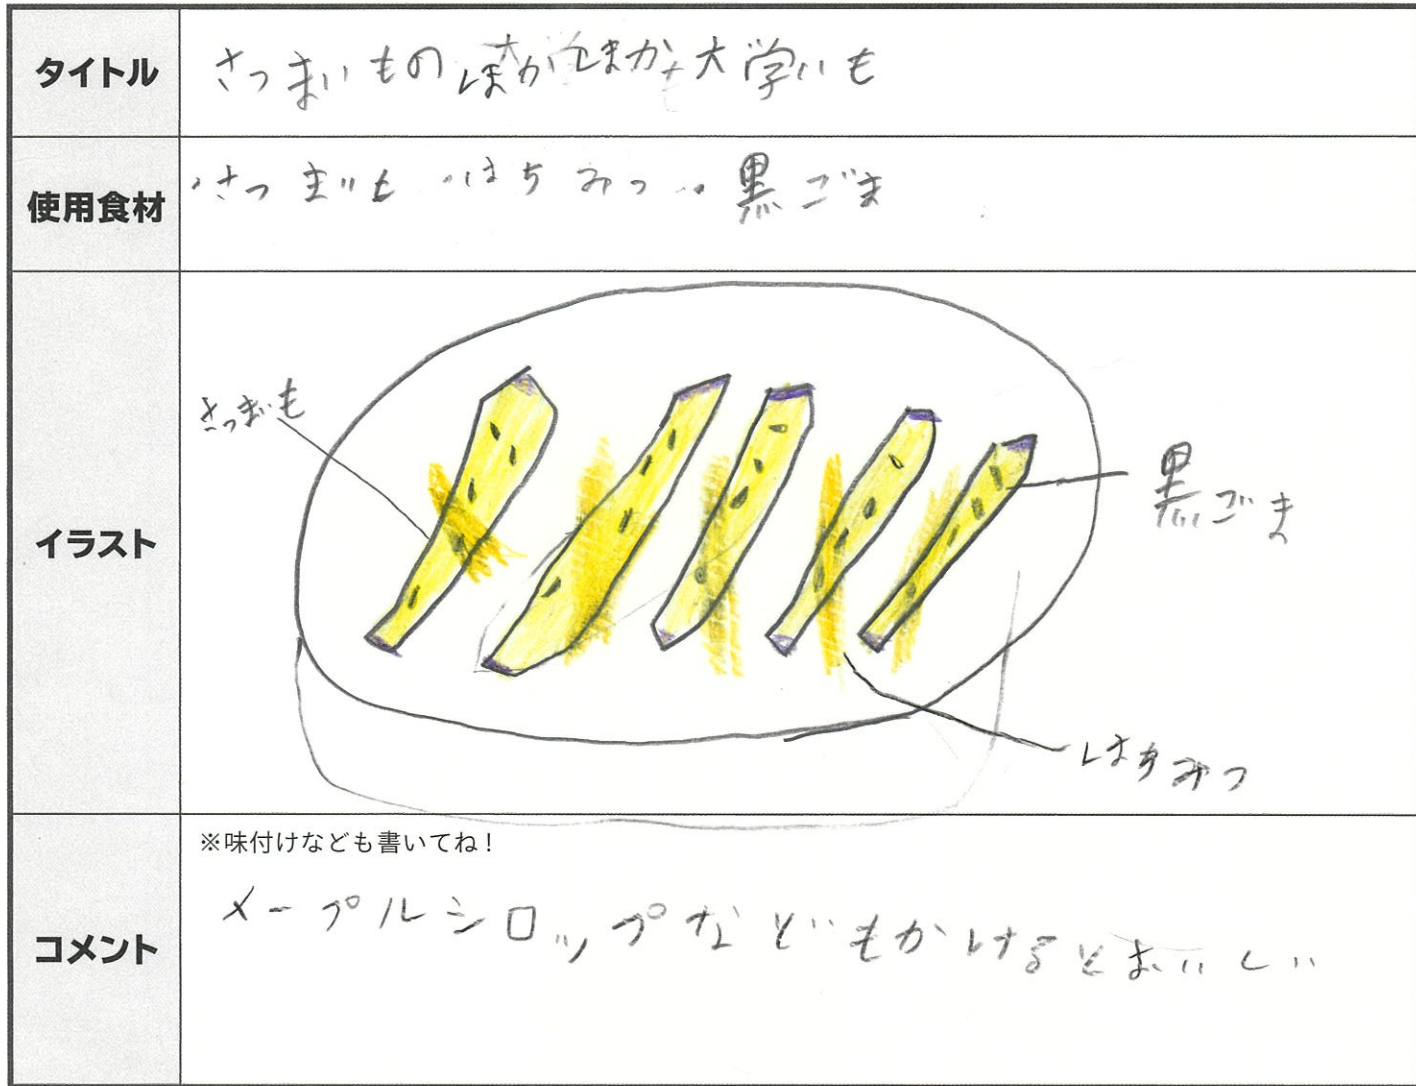 タイトル
さつまいものほかほか大学いも
使用食材
・さつまいも ・はちみつ ・黒ごま
イラスト
さつまいも
黒ごま
はちみつ
コメント
※味付けなども書いてね!
メープルシロップなどもかけるとおいしい